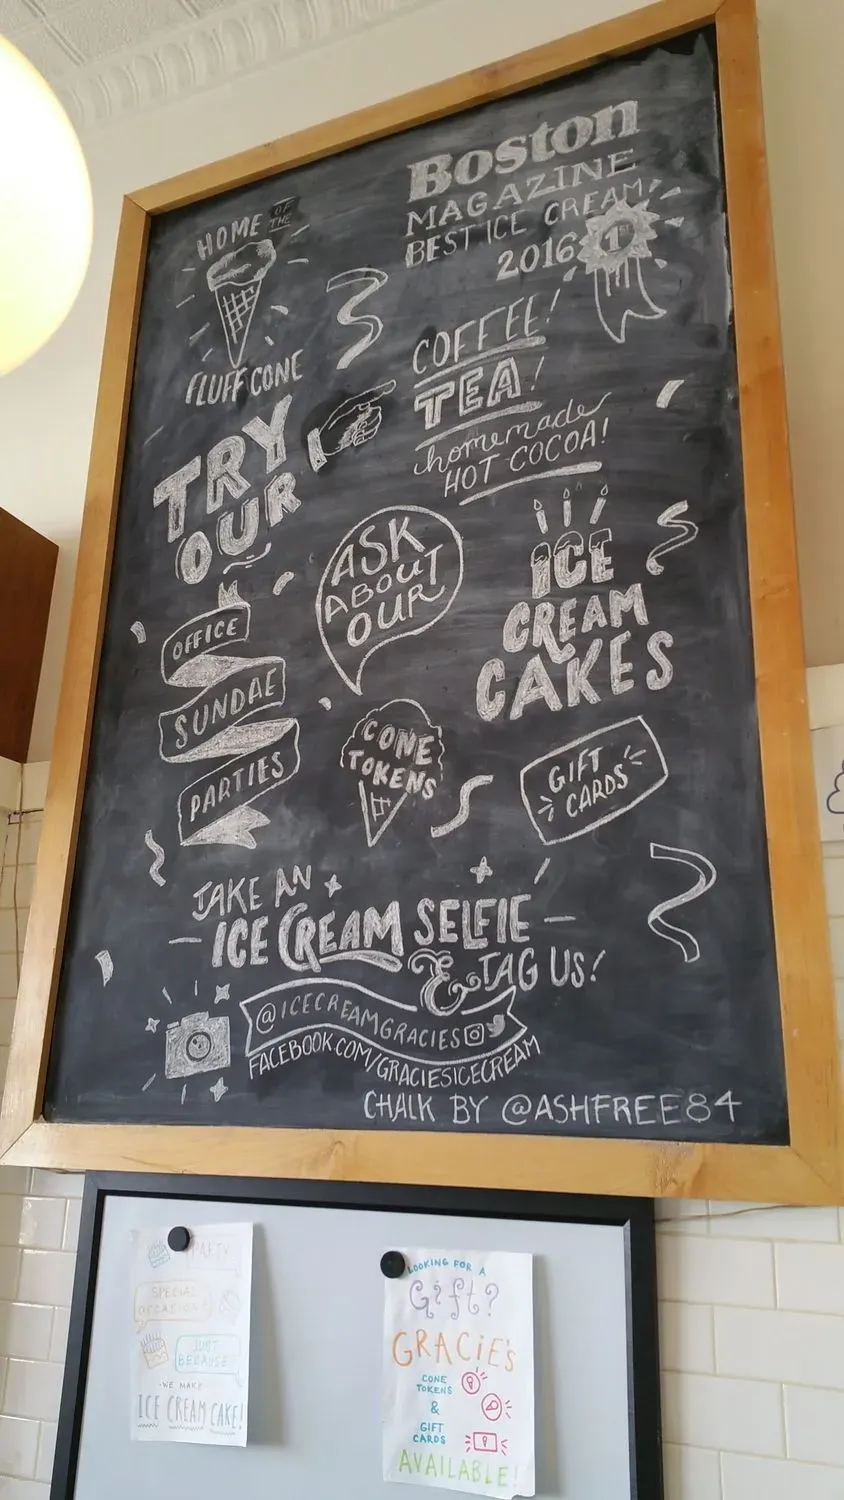 Boston
MAGAZINE
BEST ICE CREAM!
2016
1st
HOME OF THE
FLUFF CONE
TRY
OUR
COFFEE!
TEA!
homemade
HOT COCOA!
OFFICE
SUNDAE
PARTIES
ASK
ABOUT
OUR
ICE
CREAM
CAKES
CONE
TOKENS
GIFT
CARDS
TAKE AN
ICE CREAM SELFIE
& TAG US!
@ICECREAMGRACIES
FACEBOOK.COM/GRACIESICECREAM
CHALK BY @ASHFREE84
PARTY
SPECIAL
OCCASION?
JUST
BECAUSE?
WE MAKE
ICE CREAM CAKE!
LOOKING FOR A
Gift?
GRACiE's
CONE
TOKENS
&
GIFT
CARDS
AVAILABLE!